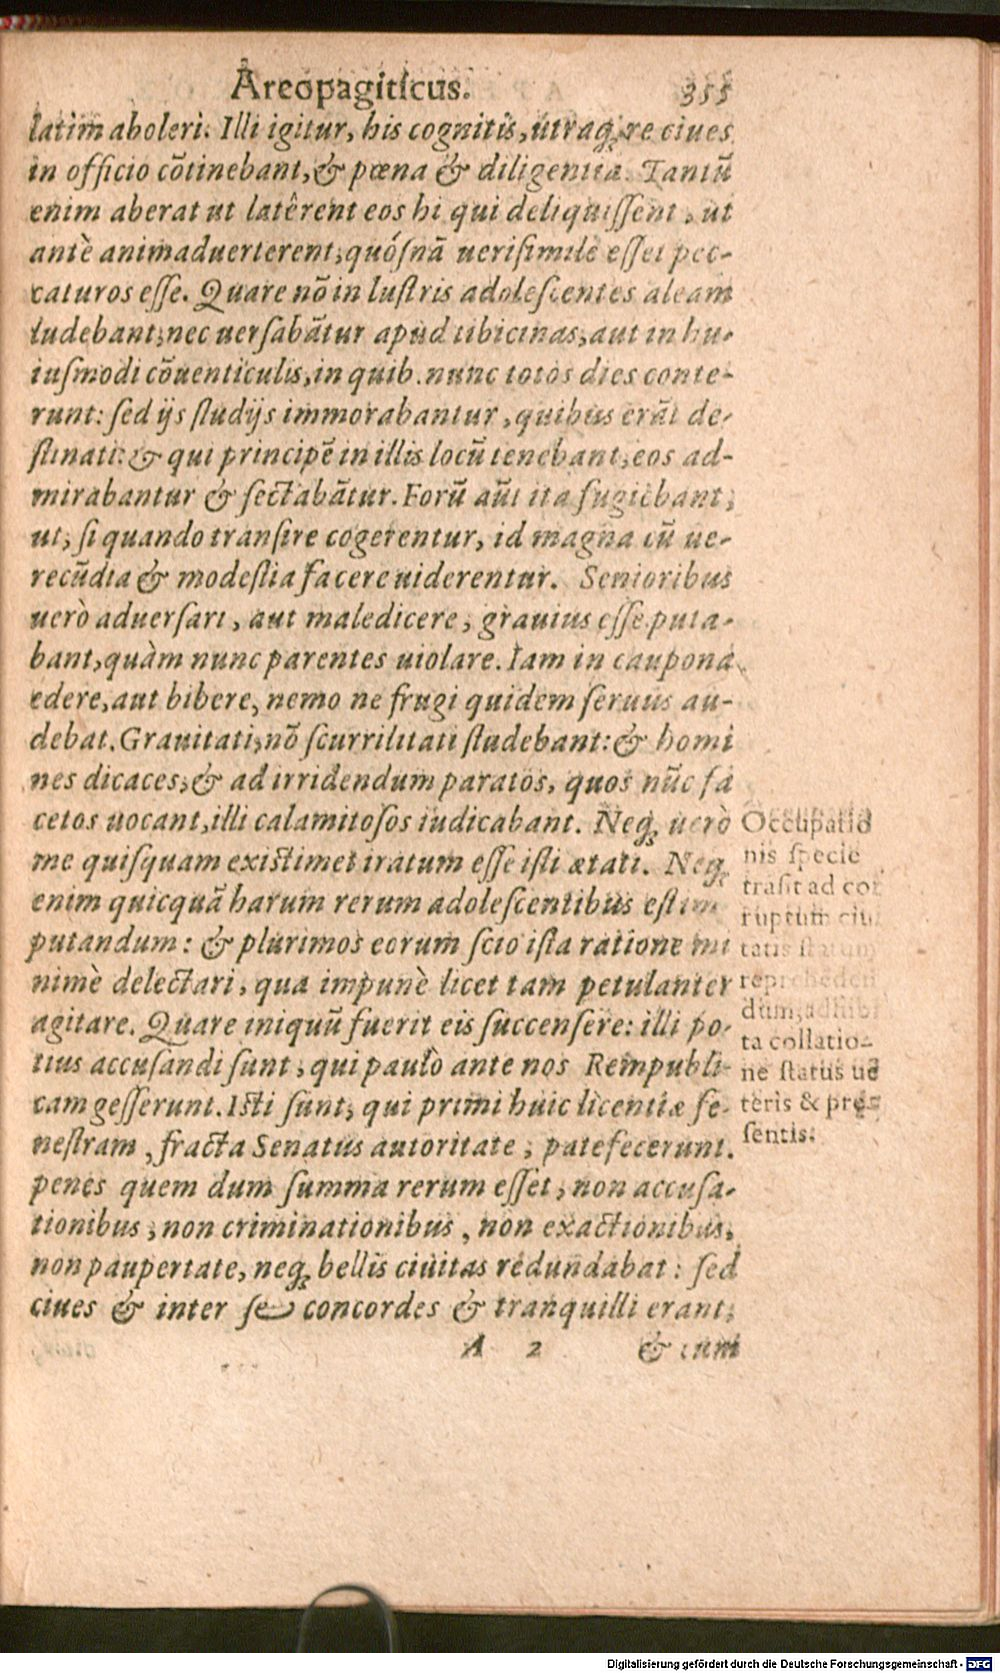 Areopagiticus. 355
latim aboleri. Illi igitur, his cognitis, utraq; re ciues
in officio cõtinebant, & pœna & diligentia. Tantũ
enim aberat ut latêrent eos hi qui deliquiſſent, ut
antè animaduerterent, quóſnã ueriſimile eſſet pec-
caturos eſſe. Quare nõ in luſtris adoleſcentes aleam
ludebant, nec uerſabãtur apud tibicinas, aut in hu-
iuſmodi cõuenticulis, in quib. nunc totos dies conte-
runt: ſed ijs ſtudijs immorabantur, quibus erãt de-
ſtinati: & qui principẽ in illis locũ tenebant, eos ad-
mirabantur & ſectabãtur. Forũ aũt ita fugiebant,
ut, ſi quando tranſire cogerentur, id magna cũ ue-
recũdia & modeſtia facere uiderentur. Senioribus
uerò aduerſari, aut maledicere, grauius eſſe puta-
bant, quàm nunc parentes uiolare. Iam in caupona
edere, aut bibere, nemo ne frugi quidem ſeruus au-
debat. Grauitati, nõ ſcurrilitati ſtudebant: & homi
nes dicaces, & ad irridendum paratos, quos nũc fa
cetos uocant, illi calamitoſos iudicabant. Neq; uerò
me quiſquam exiſtimet iratum eſſe iſti ætati. Neq;
enim quicquã harum rerum adoleſcentibus eſt im
putandum: & plurimos eorum ſcio iſta ratione mi
nimè delectari, qua impunè licet tam petulanter
agitare. Quare iniquũ fuerit eis ſuccenſere: illi po-
tius accuſandi ſunt, qui paulo ante nos Rempubli-
cam geſſerunt. Iſti ſunt, qui primi huic licentiæ fe-
neſtram, fracta Senatus autoritate, patefecerunt.
penes quem dum ſumma rerum eſſet, non accuſa-
tionibus, non criminationibus, non exactionibus,
non paupertate, neq; bellis ciuitas redundabat: ſed
ciues & inter ſe concordes & tranquilli erant,
A 2 & cum
Occupatio
nis ſpecie
trãſit ad cor
ruptum ciui
tatis ſtatum
reprehẽden
dum, adhibi
ta collatio-
ne ſtatus ue
teris & præ-
ſentis.
Digitalisierung gefördert durch die Deutsche Forschungsgemeinschaft - DFG